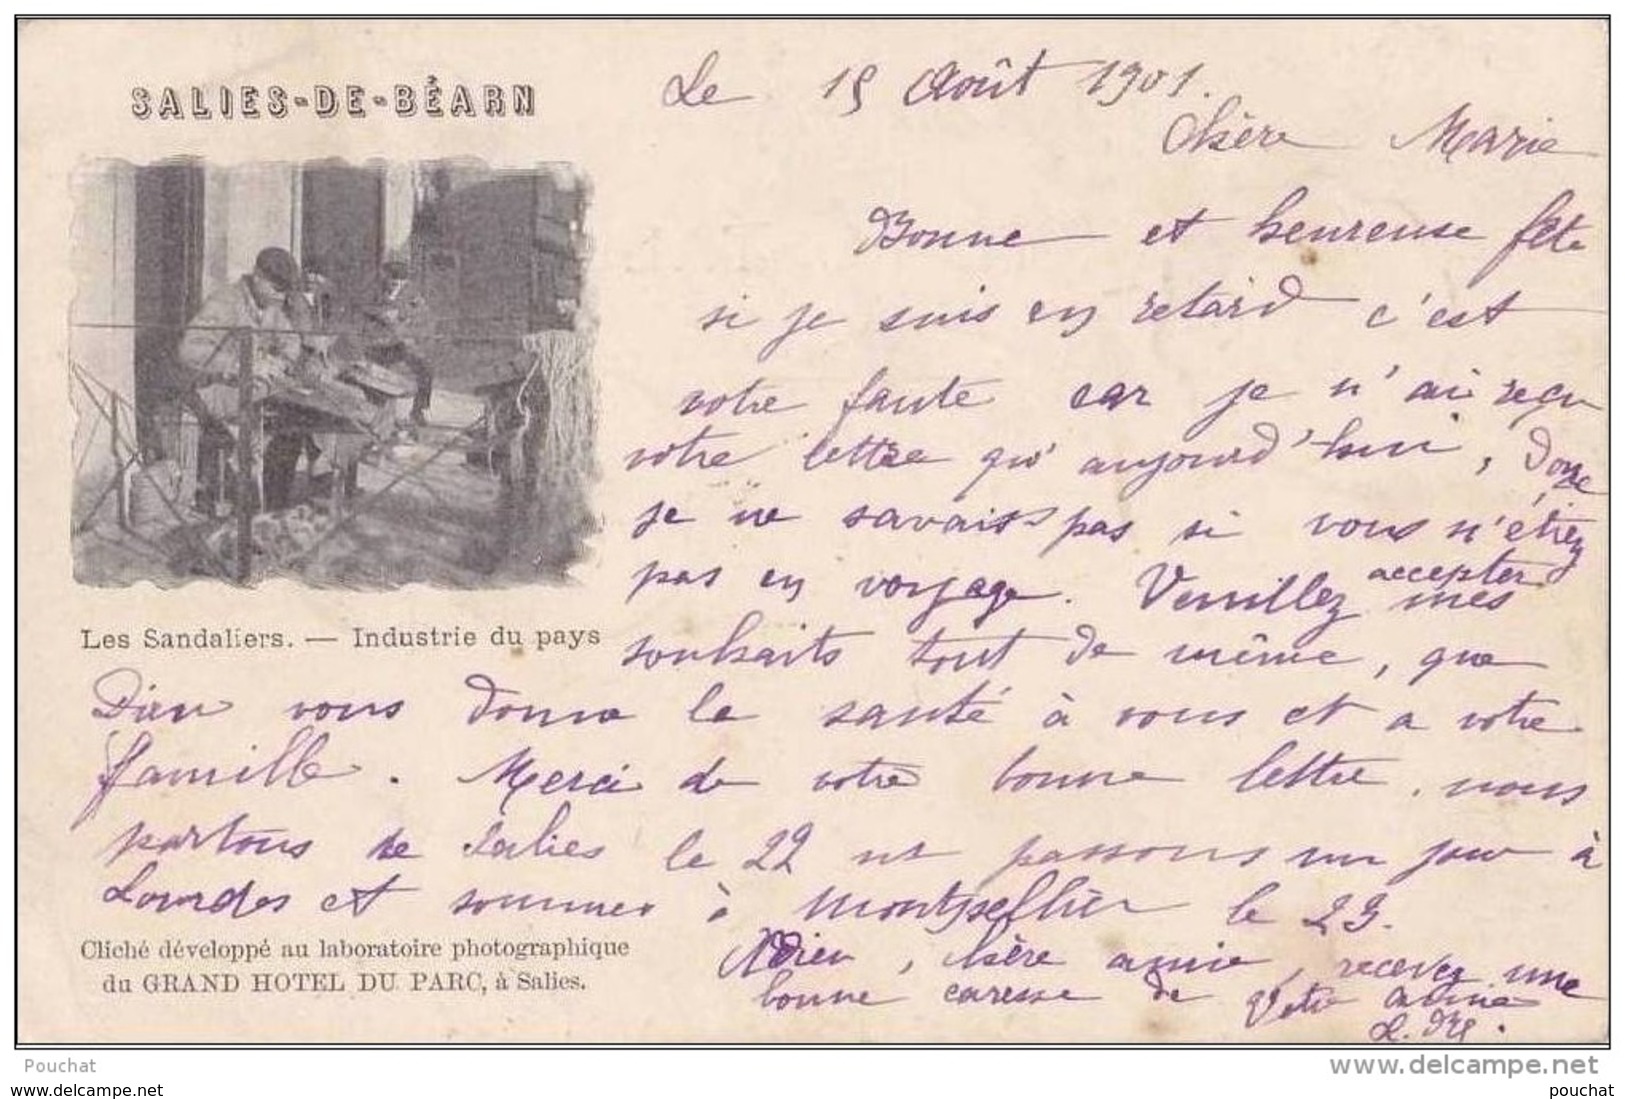 SALIES-DE-BÉARN
Le 15 Août 1901.
Chère Marie
Bonne et heureuse fête
si je suis en retard c'est
votre faute car je n'ai reçu
votre lettre qu'aujourd'hui, donc
je ne savais pas si vous n'étiez
pas en voyage. Veuillez accepter mes
souhaits tout de même, que
Les Sandaliers. — Industrie du pays
Dieu vous donne la santé à vous et a votre
famille. Merci de votre bonne lettre. nous
partons de Salies le 22 passons un jour à
Lourdes et sommes à Montpellier le 23.
Adieu, chère amie, recevez une
bonne caresse de Votre amie
Cliché développé au laboratoire photographique
du GRAND HOTEL DU PARC, à Salies.
Pouchat
delcampe.net
pouchat
pouchat